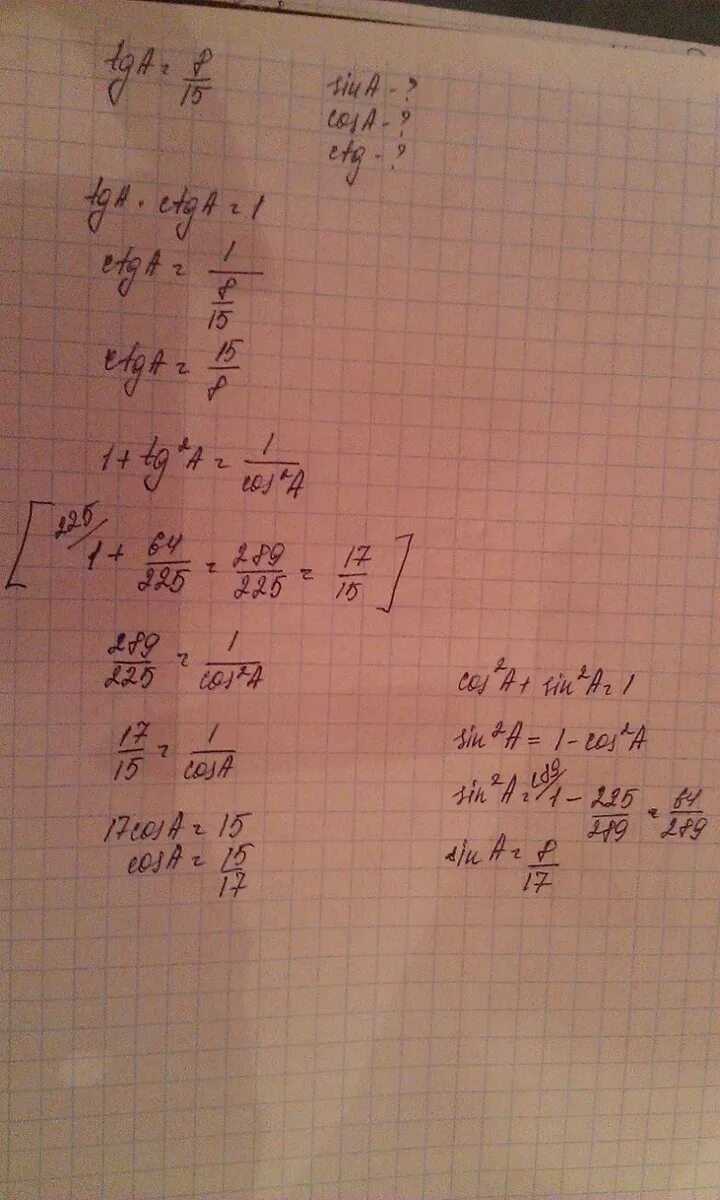 tgA = 8/15
sinA - ?
cosA - ?
ctg - ?
tgA · ctgA = 1
ctgA = 1/(8/15)
ctgA = 15/8
1 + tg²A = 1/cos²A
[ 225/ 1 + 64/225 = 289/225 = 17/15 ]
289/225 = 1/cos²A
17/15 = 1/cosA
17cosA = 15
cosA = 15/17
cos²A + sin²A = 1
sin²A = 1 - cos²A
sin²A = 289/ 1 - 225/289 = 64/289
sinA = 8/17